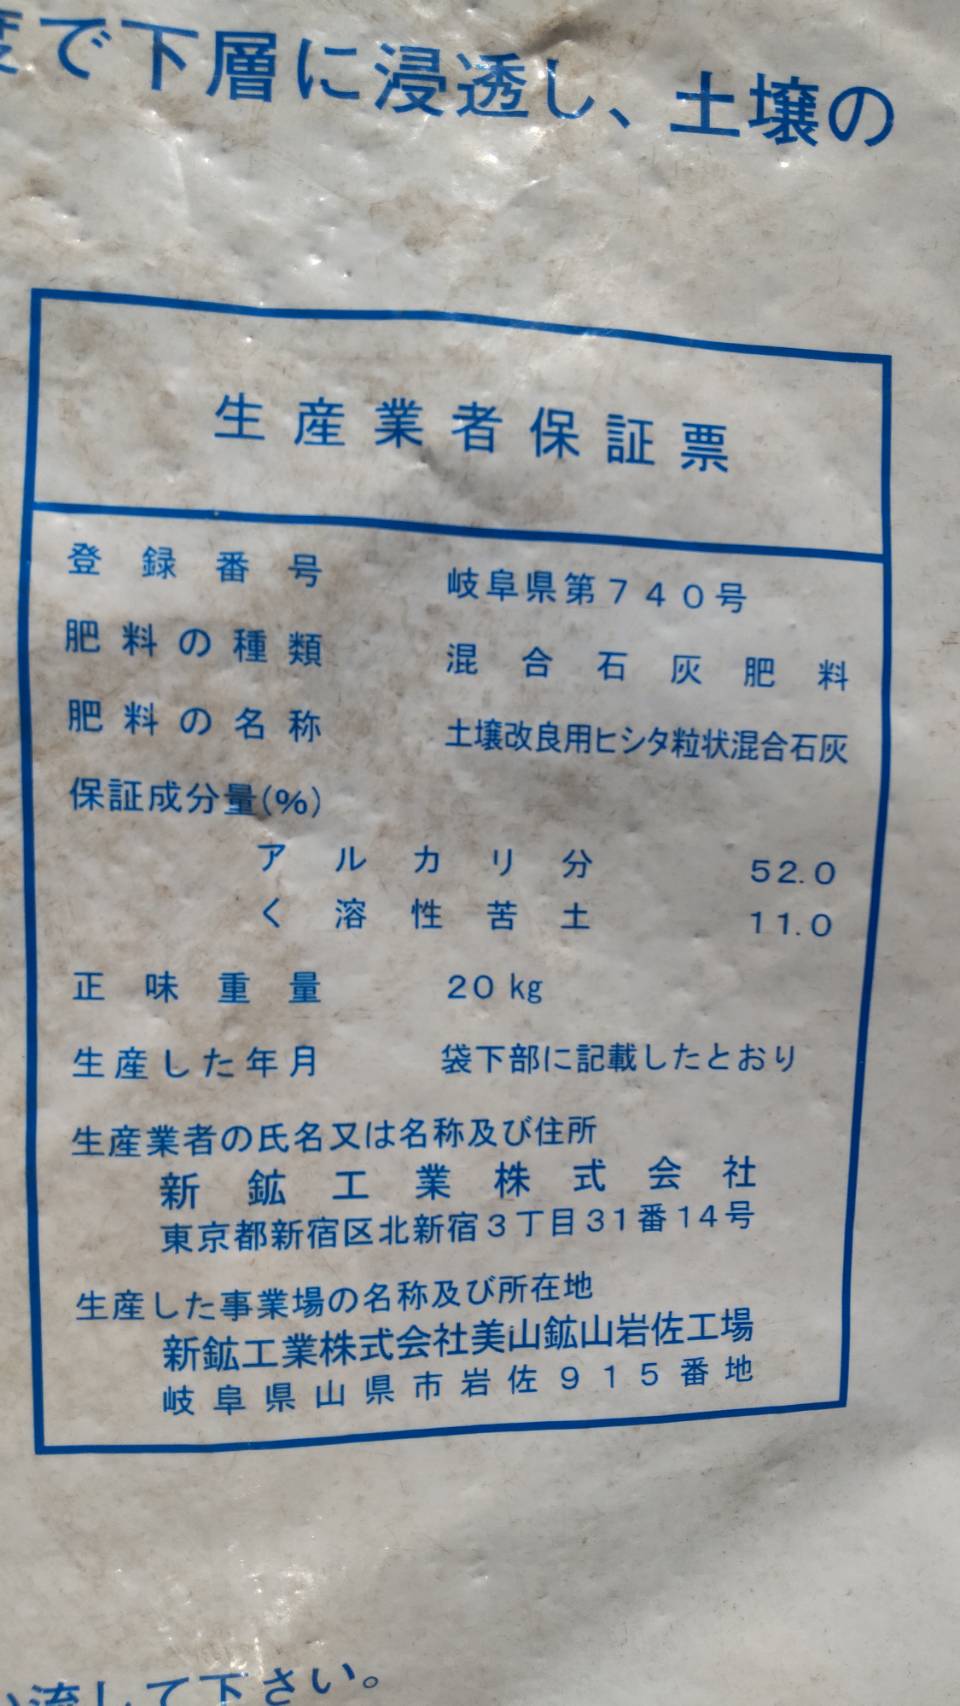 度で下層に浸透し、土壌の
生産業者保証票
登録番号 岐阜県第740号
肥料の種類 混合石灰肥料
肥料の名称 土壌改良用ヒシタ粒状混合石灰
保証成分量(%)
アルカリ分 52.0
く溶性苦土 11.0
正味重量 20kg
生産した年月 袋下部に記載したとおり
生産業者の氏名又は名称及び住所
新鉱工業株式会社
東京都新宿区北新宿3丁目31番14号
生産した事業場の名称及び所在地
新鉱工業株式会社美山鉱山岩佐工場
岐阜県山県市岩佐915番地
い流して下さい。